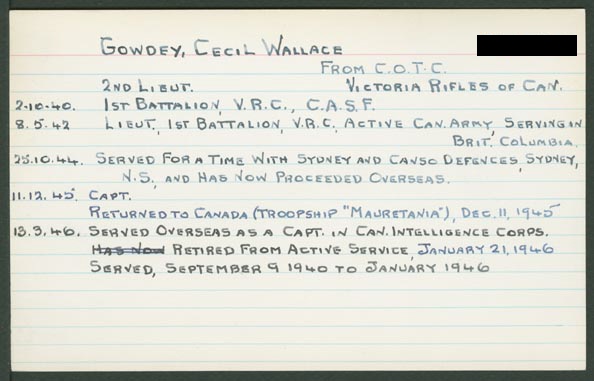 GOWDEY, CECIL WALLACE
FROM C.O.T.C.
2ND LIEUT. VICTORIA RIFLES OF CAN.
2.10.40. 1ST BATTALION, V.R.C., C.A.S.F.
8.5.42 LIEUT, 1ST BATTALION, V.R.C. ACTIVE CAN. ARMY, SERVING IN
BRIT. COLUMBIA.
25.10.44. SERVED FOR A TIME WITH SYDNEY AND CANSO DEFENCES, SYDNEY,
N.S., AND HAS NOW PROCEEDED OVERSEAS.
11.12.45. CAPT.
RETURNED TO CANADA (TROOPSHIP "MAURETANIA"), DEC. 11, 1945
13.3.46. SERVED OVERSEAS AS A CAPT. IN CAN. INTELLIGENCE CORPS.
HAS NOW RETIRED FROM ACTIVE SERVICE, JANUARY 21, 1946
SERVED, SEPTEMBER 9 1940 TO JANUARY 1946